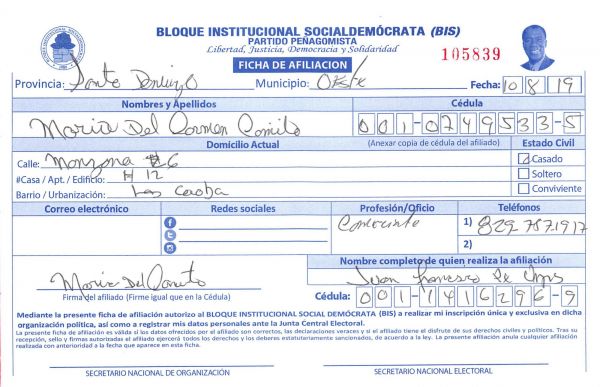 BLOQUE INSTITUCIONAL SOCIALDEMÓCRATA (BIS)
PARTIDO PEÑAGOMISTA
Libertad, Justicia, Democracia y Solidaridad
FICHA DE AFILIACION
105839
Provincia: Santo Domingo Municipio: Oeste Fecha: 10 8 19
Nombres y Apellidos Cédula
Maria Del Carmen 001-0749533-5
Domicilio Actual (Anexar copia de cédula del afiliado) Estado Civil
Calle: Manzana #6 Casado
#Casa / Apt. / Edificio: # 12 Soltero
Barrio / Urbanización: Las Caoba Conviviente
Correo electrónico Redes sociales Profesión/Oficio Teléfonos
Comerciante 1) 829 787-1917
2)
Nombre completo de quien realiza la afiliación
Maria Del Juan Francisco De
Firma del afiliado (Firme igual que en la Cédula) Cédula: 001-1416296-9
Mediante la presente ficha de afiliación autorizo al BLOQUE INSTITUCIONAL SOCIAL DEMÓCRATA (BIS) a realizar mi inscripción única y exclusiva en dicha
organización política, así como a registrar mis datos personales ante la Junta Central Electoral.
La presente ficha de afiliación es válida si los datos ofrecidos por el afiliado son correctos, las declaraciones veraces y si el afiliado tiene el disfrute de sus derechos civiles y políticos. Tras su
recepción, sello y firmas autorizadas el afiliado ejercerá todos los derechos y los deberes estatutariamente sancionados, de acuerdo a la ley. La presente afiliación anula cualquier afiliación
realizada con anterioridad a la fecha que aparece en esta ficha.
SECRETARIO NACIONAL DE ORGANIZACIÓN SECRETARIO NACIONAL ELECTORAL